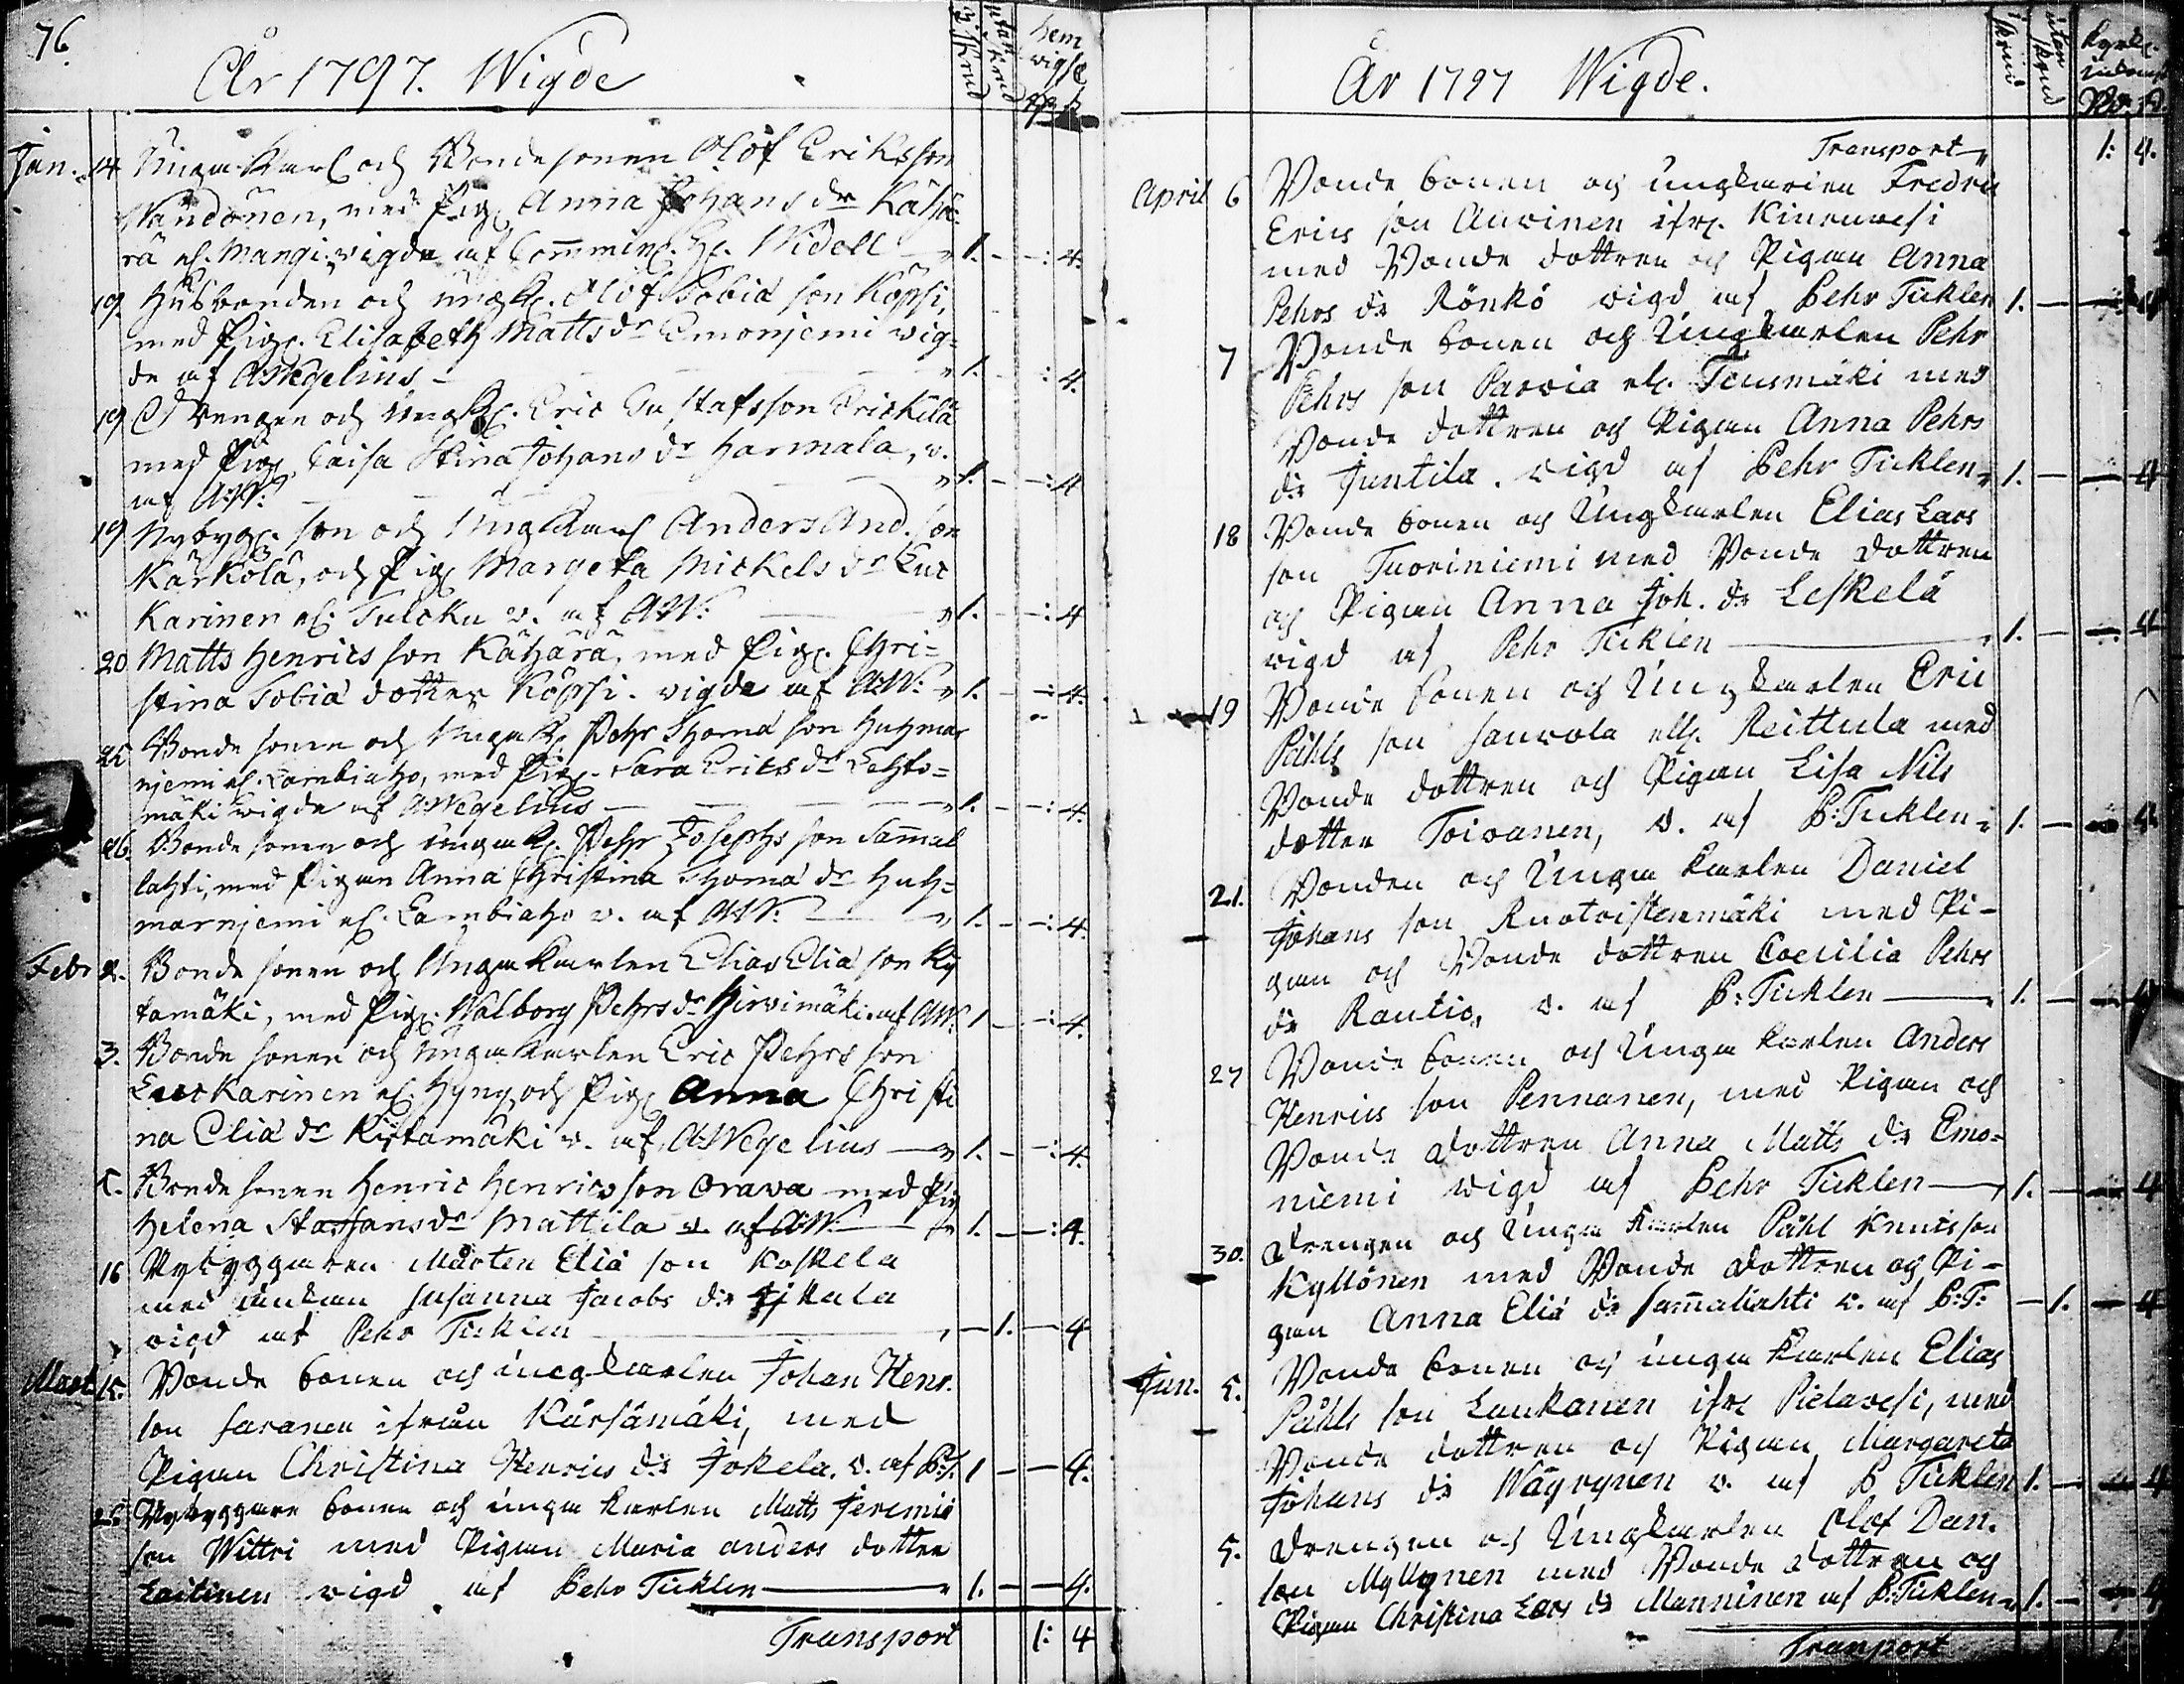 76.
År 1797. Wigde
i Krud
utan Krud
hem
wigsl
Jan. 14 Unga Karl och Bondesonen Olof Eriksson
Wandonen, med Pig. Anna Johans dr Kähä-
rä el. Mangi. vigde af Comminr. Hr. Widell 1. - -: 4.
19. Husbonden och ungk. Olof Tobiæ son Köpsi,
med Pig. Elisabeth Matts dr Emonjemi vig=
de af AWegelius - 1. - : 4.
19 Drengen och Ungk. Eric Gustafsson Erickilä
med Pig. Caisa Stina Johans dr Harmala, v.
af AW: 1. - -: 4
19 Nybyg. son och Ung Karl Anders And. son
Kärkölä, och Pig. Margeta Mickels dr Leuc
Karinen el. Tulcku v. af AW: 1. - -: 4
20 Matts Henrics son Kähärä, med Pig. Chri=
stina Tobiæ dotter Köpsi. vigde af AW: 1. - -: 4.
25 Bonde sonen och Ungak. Pehr Thomæ son Huhmar
njemi el. Lambiaho, med Pig. Sara Erics dr Lehto=
mäki vigde af AWegelius - 1. - -: 4.
26. Bonde sonen och ungak. Pehr Josephs son Sam̄al
lahti, med Pigan Anna Christina Thomæ dr Huh=
marnjemi el. Lambiaho v. af AW: 1. - -: 4.
Febr 2. Bonde sonen och Unga Karlen Elias Eliæ son Ky
tamäki, med Pig. Walborg Pehrs dr Hirvimäki. af AW. 1 - -: 4.
3. Bonde sonen och Unga Karlen Eric Pehrs son
LeucKarinen el. Hyny, och Pig. Anna Christi
na Eliæ dr Kijtamäki v. af AWegelius 1. - -: 4.
5. Bonde sonen Henric Henrics son Orawa med Pig
Helena Staffans dr Mattila v. af AW. 1. - -: 4.
16 Nybyggaren Mårten Eliæ son Koskela
med Änkan Susanna Jacobs dr
vigd af Pehr Ticklen - 1. - 4
Mart. 15. Bonde sonen och ungkarlen Johan Henr.
son Saranen ifrån Kärsämäki, med
Pigan Christina Henrics dr Jokela. v. af P:T. 1 - - 4.
25 Nybyggare sonen och unga karlen Matts Jeremiæ
son Wittri med Pigan Maria anders dotter
Laitinen vigd af Pehr Ticklen 1. - - 4.
Transport 1: 4
År 1797 Wigde.
i skrud
utan skrud
Transport 1: 4.
April 6 Bonde sonen och ungkarlen Fredric
Erics son Auvinen ifr. Kinruvesi
med Bonde dottren och Pigan Anna
Pehrs dr Rönkö vigd af Pehr Ticklen 1. - - 4
7 Bonde sonen och Ungkarlen Pehr
Pehrs son Parvia el. Tensmäki med
Bonde dottren och Pigan Anna Pehrs
dr Juntila. vigd af Pehr Ticklen 1. - - 4
18 Bonde sonen och Ungkarlen Elias Lars
son Tuoriniemi med Bonde dottren
och Pigan Anna Joh. dr Leskelä
vigd af Pehr Ticklen 1. - - 4
19 Bonde sonen och Ungkarlen Eric
Påhls son Sauvola ell. Reittula med
Bonde dottren och Pigan Lisa Nils
dotter Toivanen, v. af P:Ticklen 1. - - 4.
21. Bonden och Unga karlen Daniel
Johans son Ruotoistenmäki med Pi-
gan och Bonde dottren Cæcilia Pehrs
dr Rautio, v. af P:Ticklen 1. - - 4
27 Bonde sonen och Unga karlen Anders
Henrics son Pennanen, med Pigan och
Bonde dottren Anna Matts dr Emo-
niemi vigd af Pehr Ticklen 1. - - 4
30. Drengen och Unga Karlen Påhl Knutsson
Kyllönen med Bonde dottren och Pi-
gan Anna Eliæ dr Sam̄allahti v. af P:T: - 1. - 4
Jun. 5. Bonde sonen och unga karlen Elias
Påhls son Laukanen ifr. Pielavesi, med
Bonde dottren och Pigan Margareta
Johans dr Wäyrynen v. af P Ticklen 1. - - 4
5. Drengen och Ungkarlen Olof Dan.
son Myllynen med Bonde dottren och
Pigan Christina Lars dr Manninen af P:Ticklen 1. - - 4
Tranport